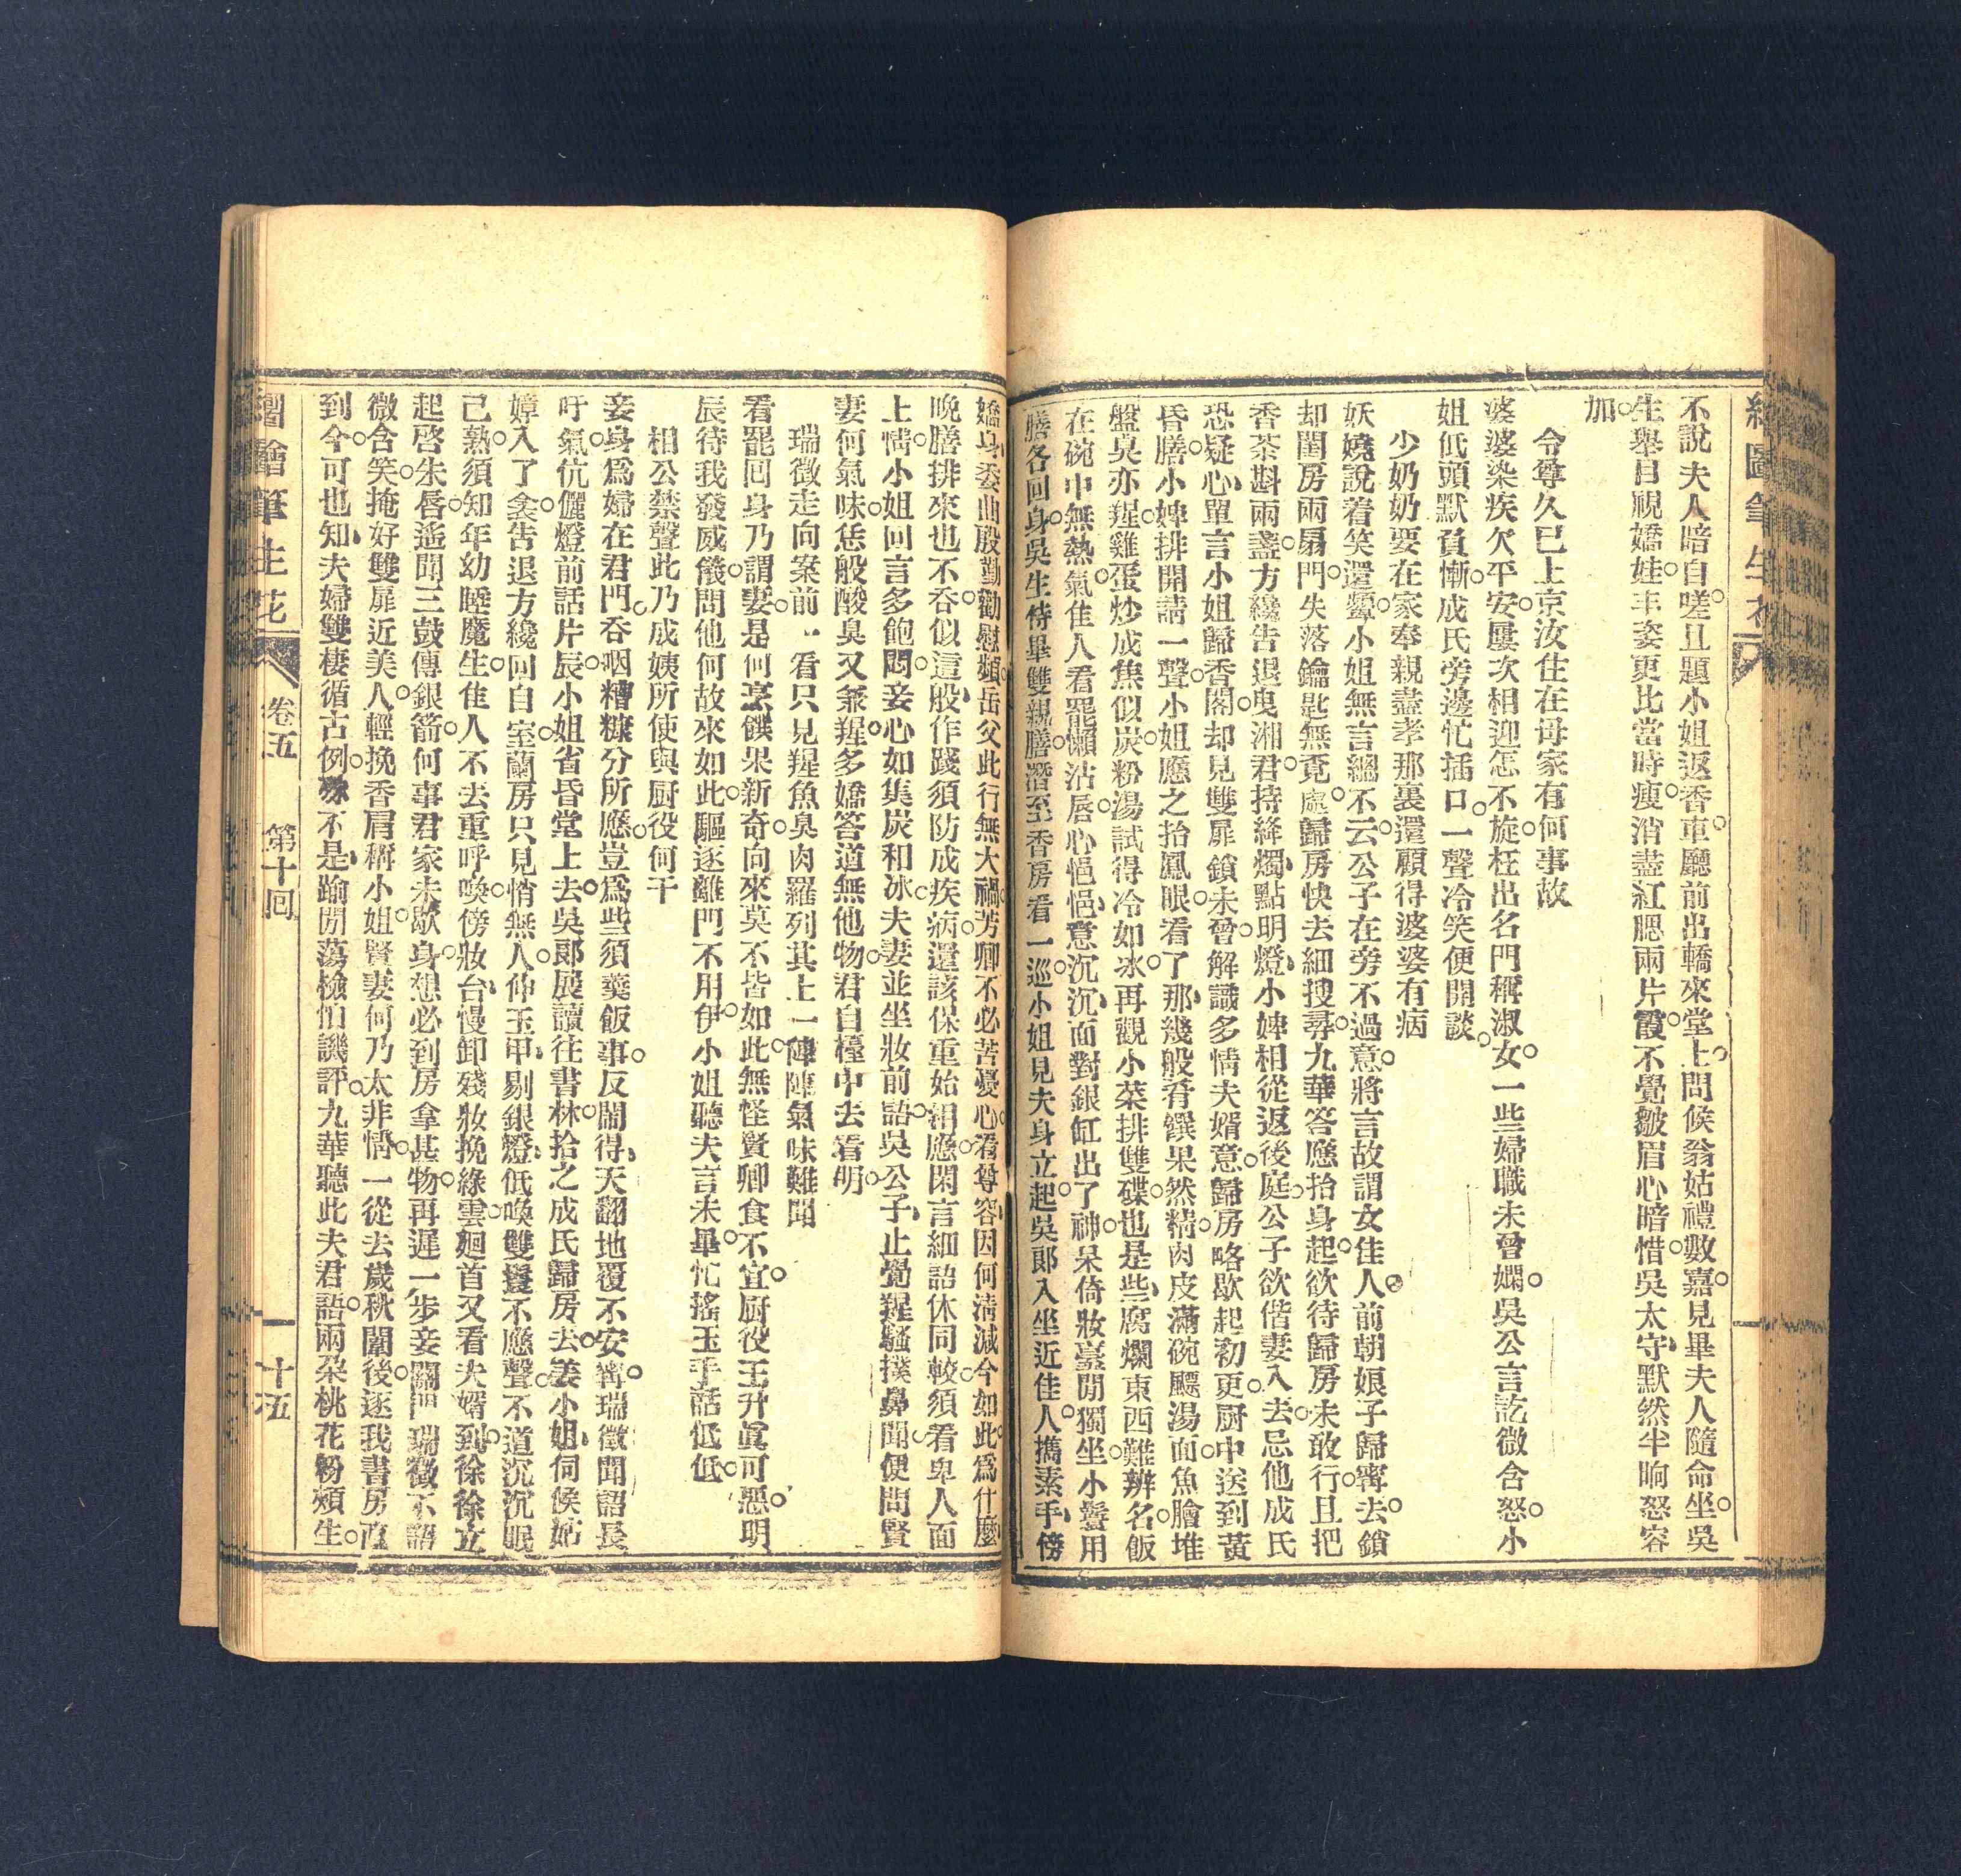 繪圖筆生花
不說夫人暗自嗟○且題小姐返香車○廳前出轎來堂上○問候翁姑禮數嘉○見畢夫人隨命坐○吳
生舉目視嬌娃○丰姿更比當時瘦○消盡紅腮兩片霞○不覺皺眉心暗惜○吳太守默然半晌怒容
加○
令尊久已上京汝住在母家有何事故
婆婆染疾欠平安○屢次相迎怎不旋○枉出名門稱淑女○一些婦職未曾嫻○吳公言訖微含怒○小
姐低頭默負慚○成氏旁邊忙插口○一聲冷笑便開談○
少奶奶要在家奉親盡孝那裏還顧得婆婆有病
妖嬈說着笑還顰○小姐無言總不云○公子在旁不過意○將言故謂女佳人○前朝娘子歸寧去○鎖
却閨房兩扇門○失落鑰匙無覓處○歸房快去細搜尋○九華答應抬身起○欲待歸房未敢行○且把
香茶斟兩盞○方纔告退曳湘君○持絳燭點明燈○小婢相從返後庭○公子欲偕妻入去○忌他成氏
恐疑心○單言小姐歸香閣○却見雙扉鎖未曾○解識多情夫婿意○歸房略歇起初更○厨中送到黃
昏膳○小婢排開請一聲○小姐應之抬鳳眼○看了那幾般肴饌果然精○肉皮滿碗飃湯面○魚膾堆
盤臭亦腥○雞蛋炒成焦似炭○粉湯試得冷如冰○再觀小菜排雙碟○也是些腐爛東西難辨名○飯
在碗中無熱氣○佳人看罷懶沾唇○心悒悒意沉沉○面對銀缸出了神○呆倚妝臺閒獨坐○小鬟用
膳各回身○吳生侍畢雙親膳○潛至香房看一巡○小姐見夫身立起○吳郎入坐近佳人○攜素手傍
嬌身○委曲殷勤勸慰頻○岳父此行無大禍○芳卿不必苦憂心○看尊容因何淸減今如此○爲什麼
晚膳排來也不吞○似這般作踐須防成疾病○還該保重始相應○閑言細語休同較○須看卑人面
上情○小姐回言多飽悶○妾心如集炭和冰○夫妻並坐妝前語○吳公子止覺腥騷撲鼻聞○便問賢
妻何氣味○恁般酸臭又兼腥○多嬌答道無他物○君自檯中去看明○
瑞徵走向案前一看只見腥魚臭肉羅列其上一陣陣氣味難聞
看罷回身乃謂妻○是何烹饌果新奇○向來莫不皆如此○無怪賢卿食不宜○厨役王升眞可惡○明
辰待我發威儀○問他何故來如此○驅逐離門不用伊○小姐聽夫言未畢○忙搖玉手話低低○
相公禁聲此乃成姨所使與厨役何干
妾身爲婦在君門○吞咽糟糠分所應○豈爲些須羹飯事○反鬧得天翻地覆不安寧○瑞徵聞語長
吁氣○伉儷燈前話片辰○小姐省昏堂上去○吳郎展讀往書林○拾之成氏歸房去○姜小姐伺候姑
嫜入了衾○告退方纔回自室○蘭房只見悄無人○伸玉甲剔銀燈○低喚雙鬟不應聲○不道沉沉眠
己熟○須知年幼睡魔生○佳人不去重呼喚○傍妝台慢卸殘妝挽綠雲○廻首又看夫婿到○徐徐立
起啓朱唇○遙聞三鼓傳銀箭○何事君家未歇身○想必到房拿甚物○再遲一步妾關門○瑞徵不語
微含笑○掩好雙扉近美人○輕挽香肩稱小姐○賢妻何乃太非情○一從去歲秋闈後○逐我書房直
到今○可也知夫婦雙棲循古例○殊不是踰閑蕩檢怕譏評○九華聽此夫君語○兩朶桃花粉頰生○
繪圖筆生花
卷五
第十回
十五